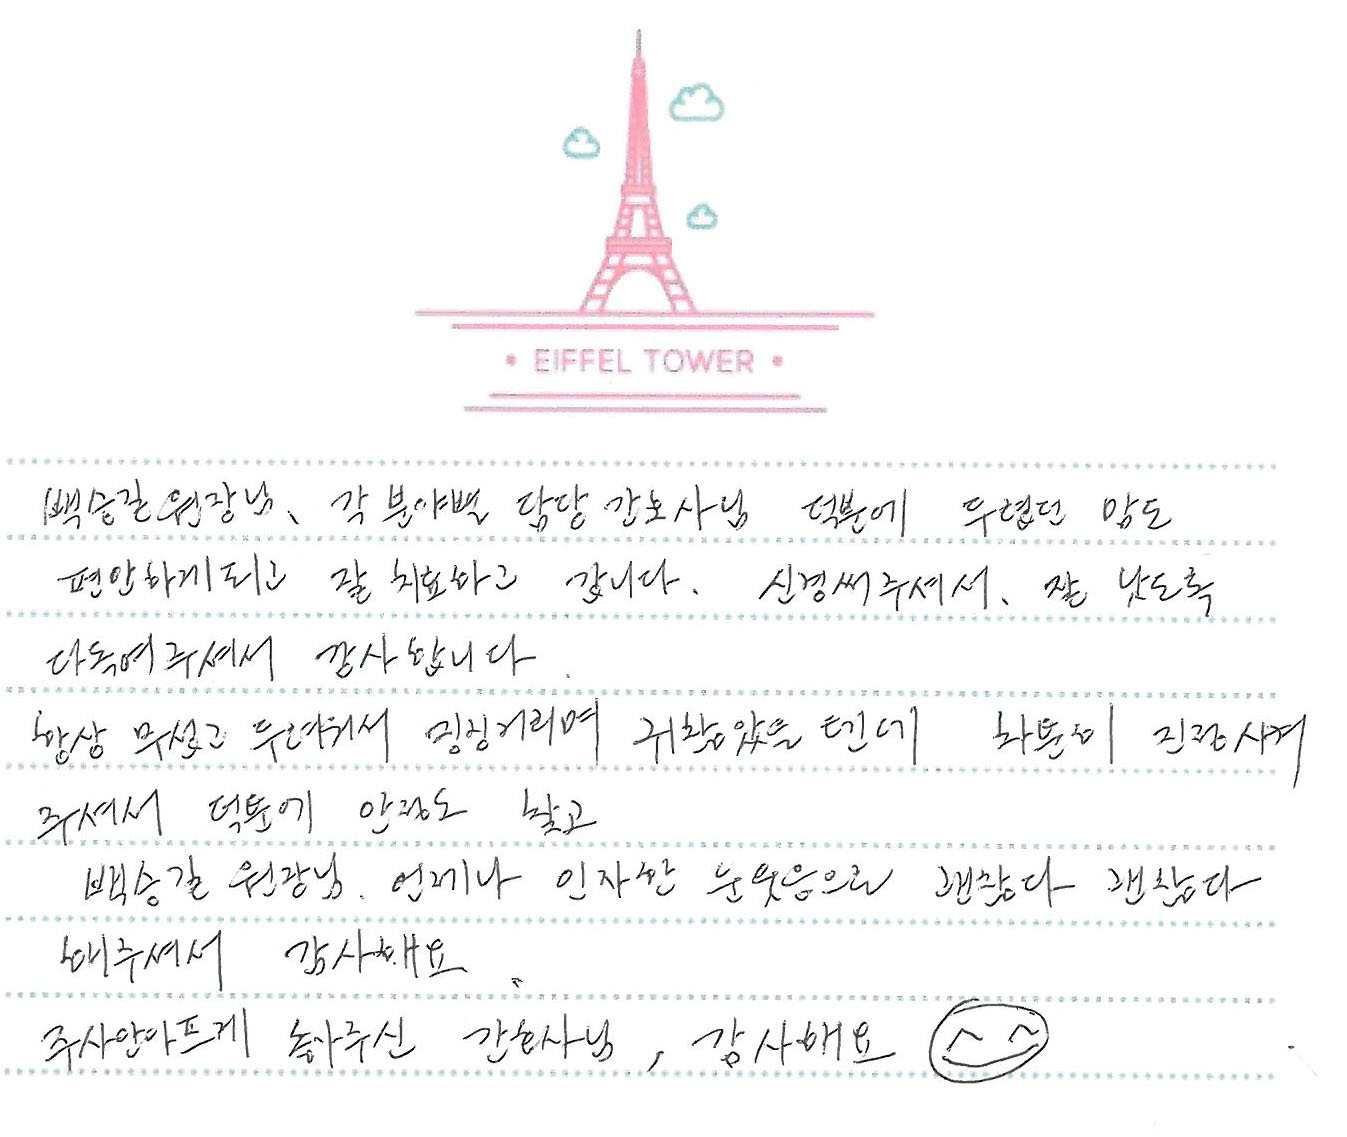 EIFFEL TOWER
백승길 원장님、 각 분야별 담당 간호사님 덕분에 두렵던 맘도
편안하게 되고 잘 치료하고 갑니다. 신경써주셔서、 잘 낫도록
다독여주셔서 감사합니다.
항상 무섭고 두려워서 징징거리며 귀찮았을 텐데 차분히 진정시켜
주셔서 덕분에 안정도 찾고
백승길 원장님. 언제나 인자한 눈웃음으로 괜찮다 괜찮다
해주셔서 감사해요.
주사안아프게 놓아주신 간호사님, 감사해요 ^^